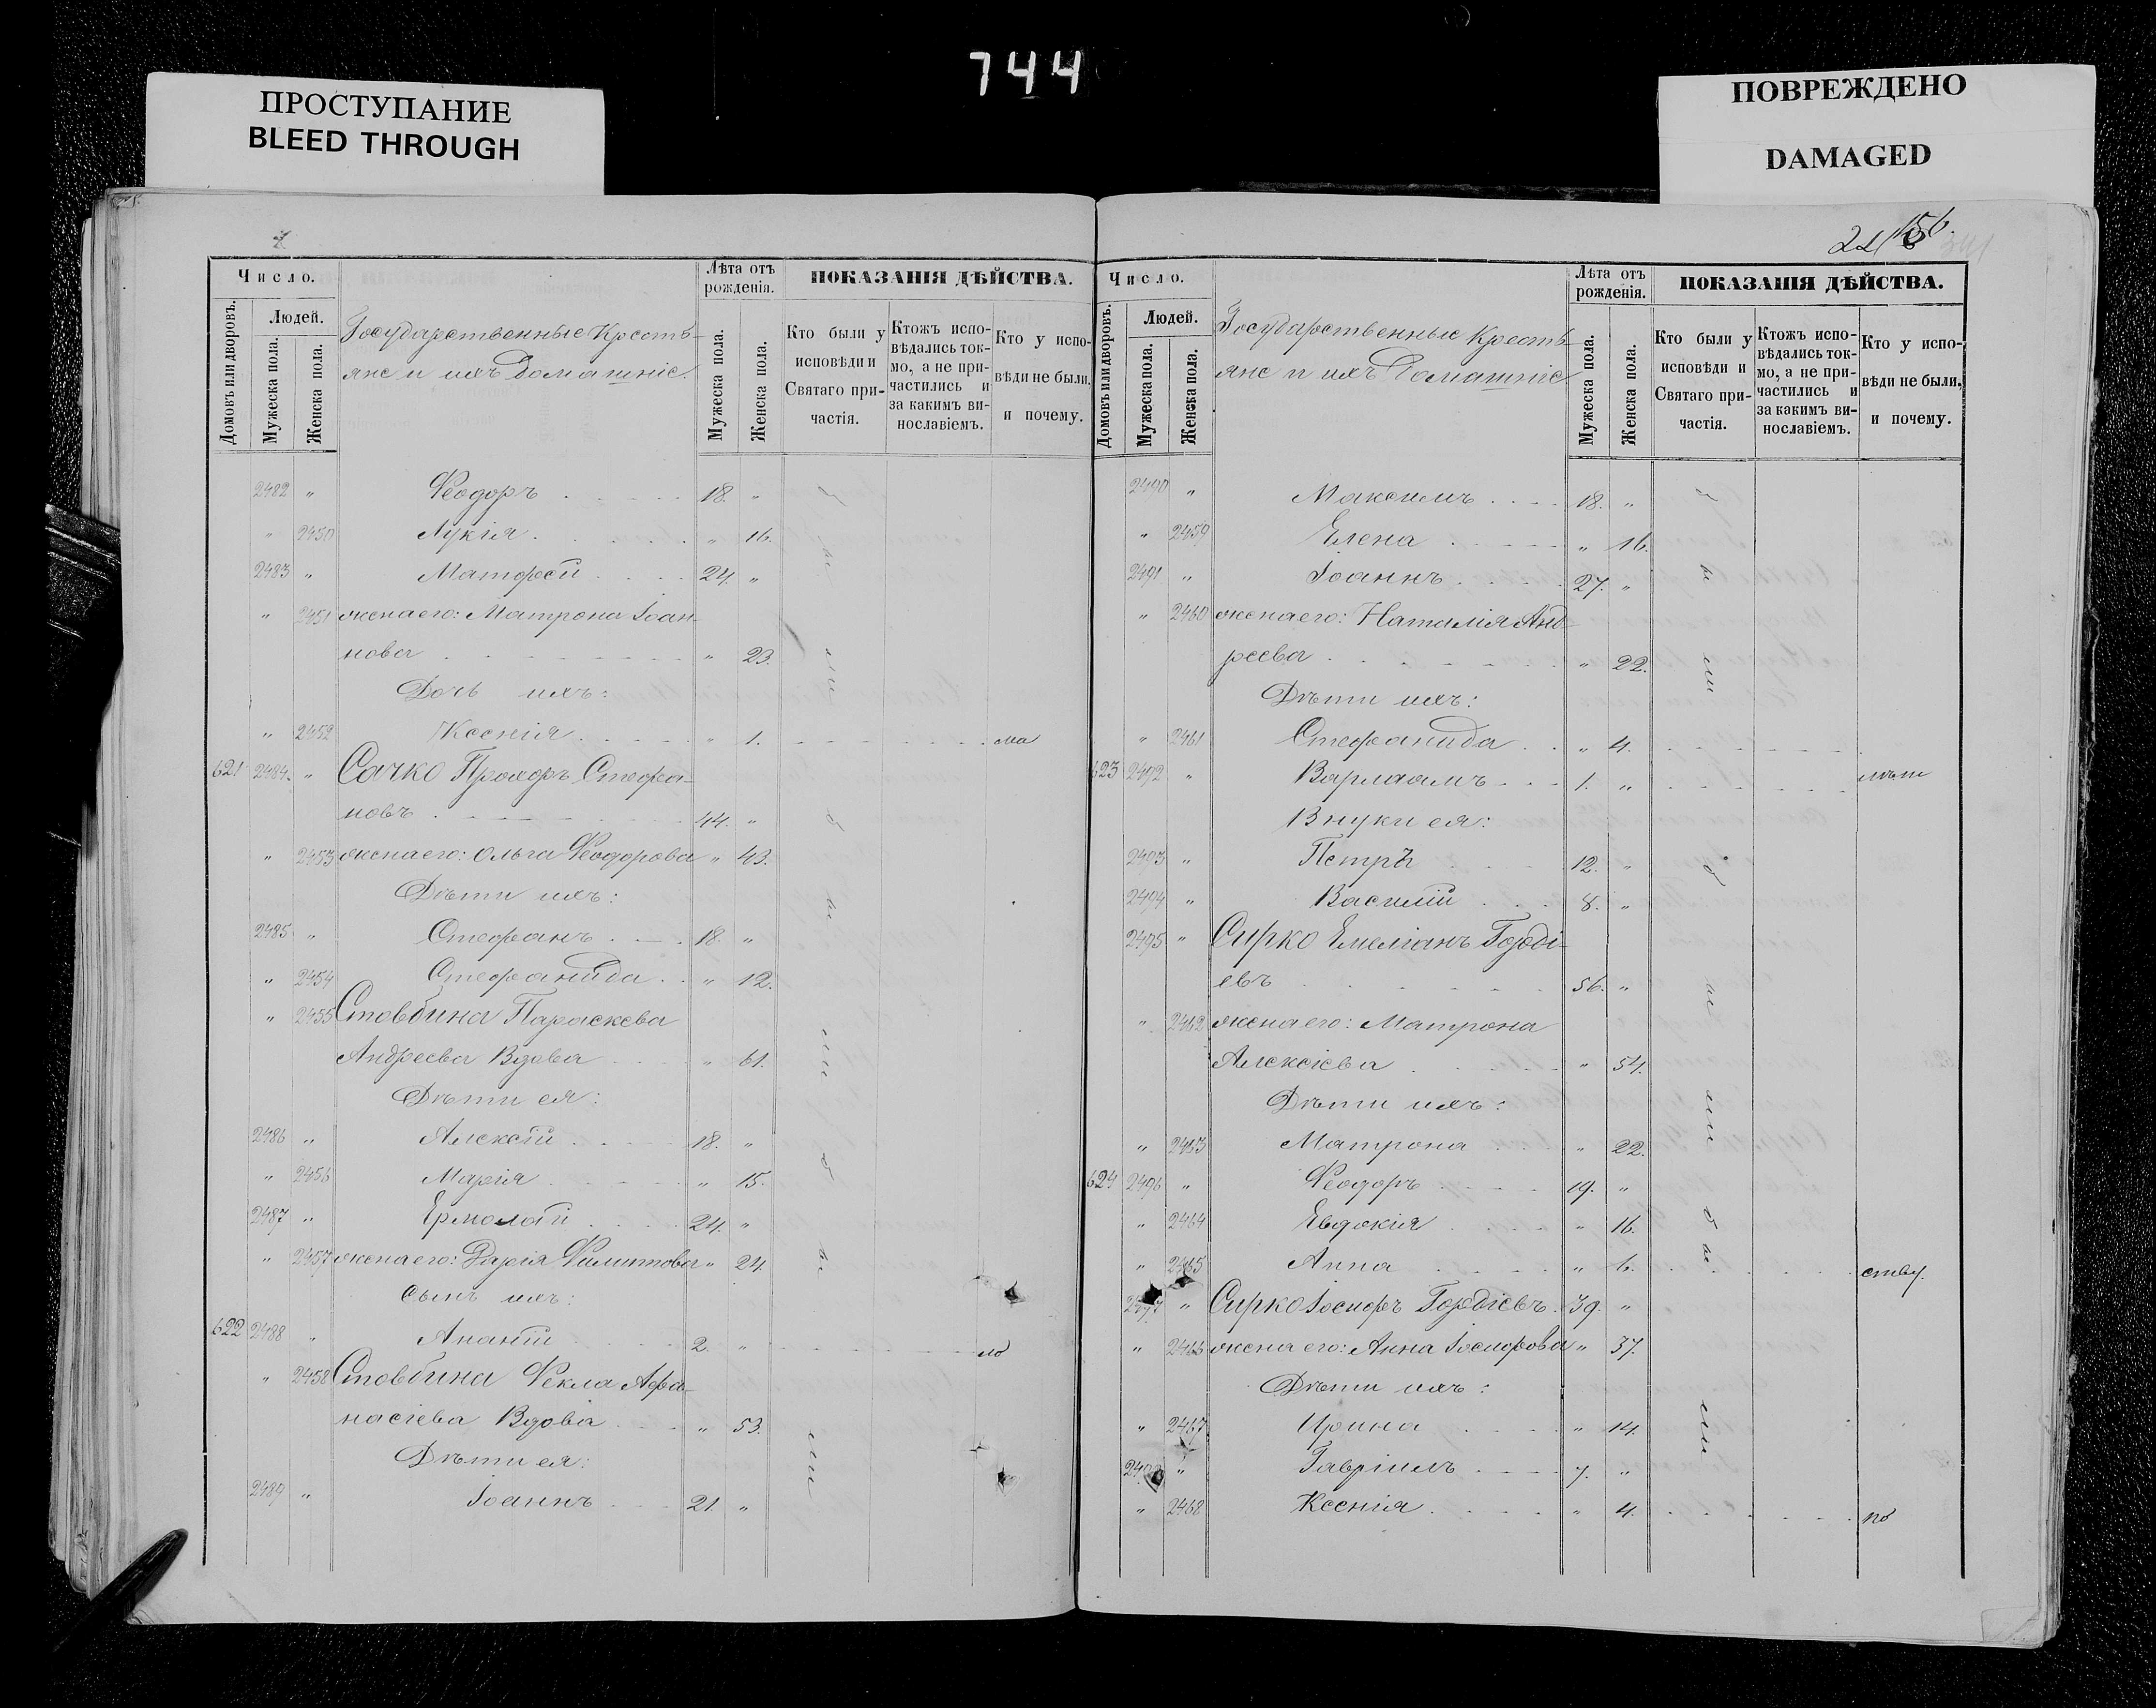 744
ПРОСТУПАНИЕ
BLEED THROUGH
ПОВРЕЖДЕНО
DAMAGED
Число.
Людей.
Домовъ или дворовъ.
Мужеска пола.
Женска пола.
Государственные Кресть-
яне и ихъ домашніе.
Лѣта отъ рожденія.
Мужеска пола.
Женска пола.
ПОКАЗАНІЯ ДѢЙСТВА.
Кто были у исповѣди и Святаго причастія.
Ктожъ исповѣдались токмо, а не причастились и за какимъ винославіемъ.
Кто у исповѣди не были, и почему.
2482 " Ѳеодоръ 18. "
" 2450 Лукія " 16.
2483 " Матфей 24. "
" 2451 жена его: Матрона Іоан-
нова " 23.
Дочь ихъ:
" 2452 Ксенія " 1. ма
621 2484. " Сачко Прохоръ Стефа-
новъ 44. "
" 2453 жена его: Ольга Ѳеодорова " 43.
Дѣти ихъ:
2485 " Стефанъ 18. "
" 2454 Стефанида " 12.
" 2455 Стовбина Параскева
Андреева Вдова " 61.
Дѣти ея:
2486 " Алексій 18. "
" 2456 Марія " 15.
2487 " Ермолай 24. "
" 2457 жена его: Дарія Филиппова " 24.
Сынъ ихъ:
622 2488 " Ананій 2. " ло
" 2458 Стовбина Ѳекла Афа-
насіева Вдова " 53.
Дѣти ея:
2489 " Іоаннъ 21. "
156.
Число.
Людей.
Домовъ или дворовъ.
Мужеска пола.
Женска пола.
Государственные Кресть-
яне и ихъ домашніе.
Лѣта отъ рожденія.
Мужеска пола.
Женска пола.
ПОКАЗАНІЯ ДѢЙСТВА.
Кто были у исповѣди и Святаго причастія.
Ктожъ исповѣдались токмо, а не причастились и за какимъ винославіемъ.
Кто у исповѣди не были, и почему.
2490 " Максимъ 18. "
" 2459 Елена " 16.
2491 " Іоаннъ 27. "
" 2460 жена его: Наталія Анд-
реева " 22.
Дѣти ихъ:
" 2461 Стефанида " 4.
623 2492 " Варлаамъ 1. " лѣт
Внуки ея:
2493 " Петръ 12. "
2494 " Василій 8. "
2495 " Сирко Емеліанъ Горді-
евъ 56. "
" 2462 жена его: Матрона
Алексіева " 54.
Дѣти ихъ:
" 2463 Матрона " 22.
624 2496 " Ѳеодоръ 19. "
" 2464 Евдокія " 16.
" 2465 Анна " 6. ству.
2497 " Сирко Іосифъ Гордіевъ 39. "
" 2466 жена его: Анна Іосифова " 37.
Дѣти ихъ:
" 2467 Ирина " 14.
" Гавріилъ 7. "
" 2468 Ксенія " 4. по